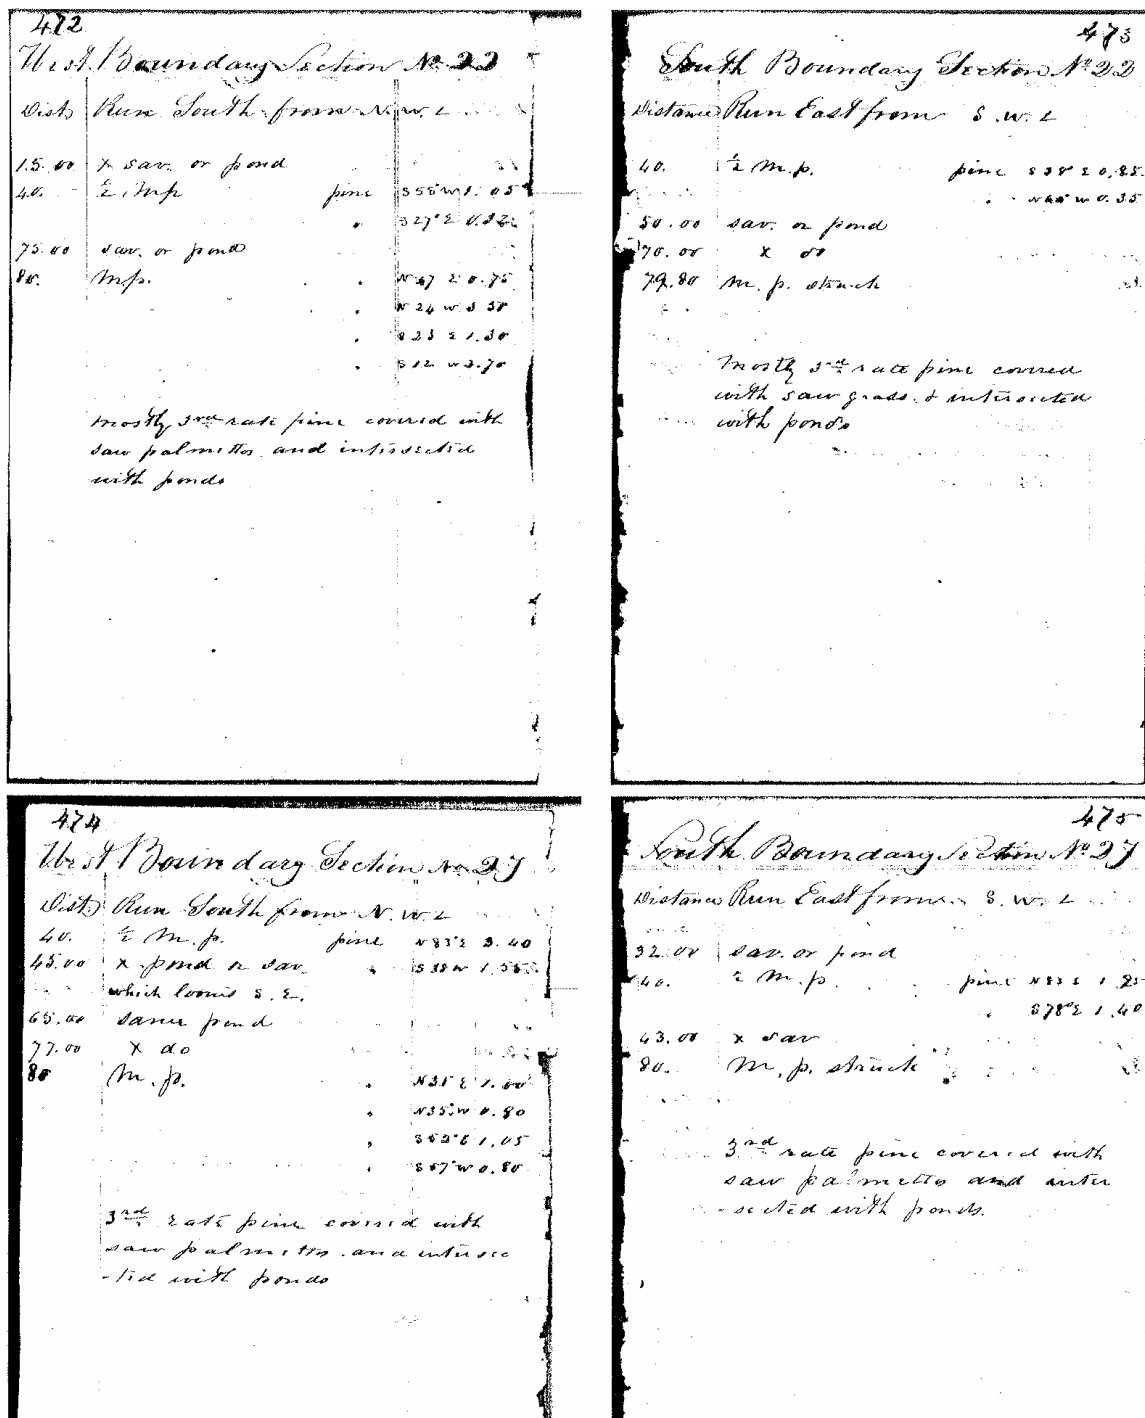 472
West Boundary Section No 22
Dist. Run South from N. W. c
15.00 x sav. or pond
40. ½ m p pine S55°W 1.05
" S27°E 0.32
75.00 sav. or pond
80. m p. " N47 E 0.75
" N24 W
" S23 E 1.30
" S12 W 2.70
Mostly 3rd rate pine covered with
saw palmetto and intersected
with ponds
473
South Boundary Section No 22
Distance Run East from S. W. c
40. ½ m. p. pine S38°E 0.85
" W 0.35
50.00 sav. or pond
70.00 x do
79.80 m. p. struck
Mostly 3rd rate pine covered
with saw grass & intersected
with ponds
474
West Boundary Section No 27
Dist. Run South from N. W. c
40. ½ m. p. pine N83°E 3.40
45.00 x pond or sav. " S38 W
which S. E.
65.00 same pond
77.00 x do
80 m. p. " N31 E 1.00
" N35 W 0.80
" E 1.05
" S57°W 0.80
3rd rate pine covered with
saw palmetto and intersec
-ted with ponds
475
South Boundary Section No 27
Distance Run East from S. W. c
32.00 sav. or pond
40. ½ m. p. pine N83 E 1.25
" S78°E 1.40
43.00 x sav
80. m. p. struck
3rd rate pine covered with
saw palmetto and inter
-sected with ponds.